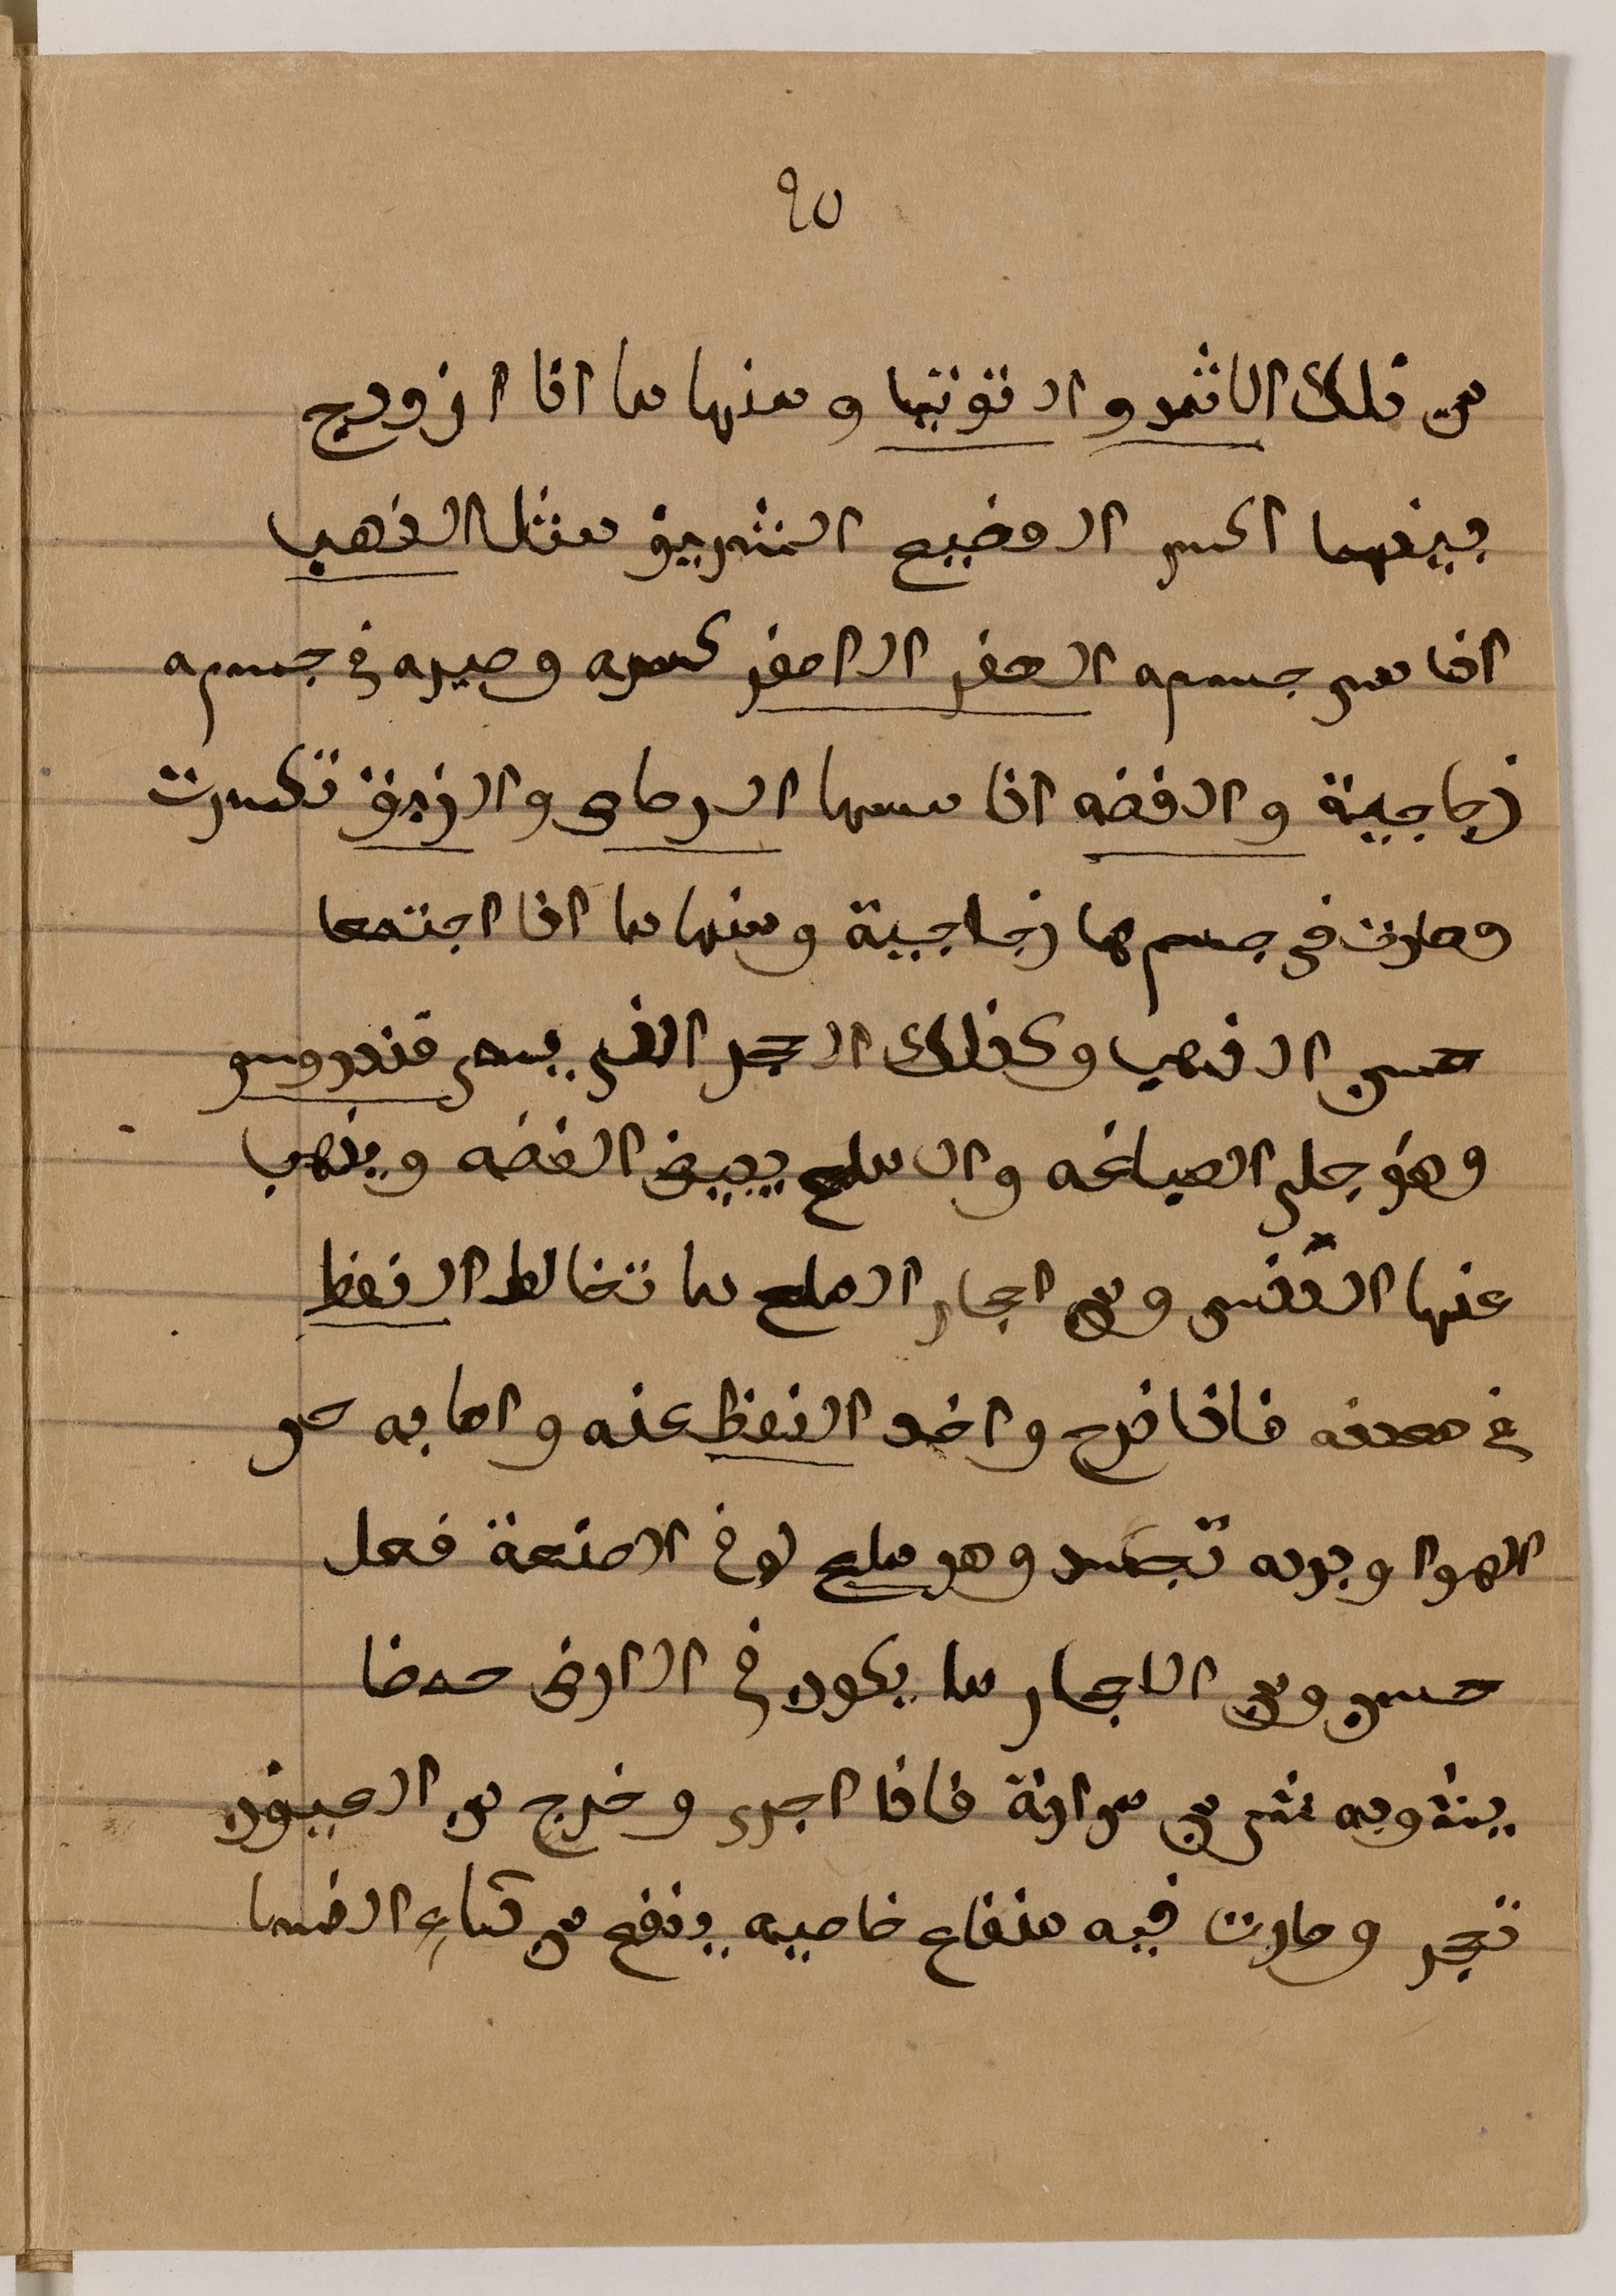 ٩٥
من ذلك الاثمد والتوتيا ومنها ما اذا ازودج
بينهما اكسر الوضيع الشريف مثل الذهب
اذا مس جسمه الصفر الاصفر كسره وصيره في جسمه
زجاجية والفضه اذا مسها الرصاص والزيبق تكسرت
وصارت في جسمها زجاجية ومنها ما اذا اجتمعا
حسن الذهب وكذلك الحجر الذي يسمى قندروس
وهو جلى الصياغه والملح يبيض الفضه ويذهب
عنها الدنس ومن احجار الملح ما تخالط النفط
في معدنه فاذا خرج واخد النفط عنه واصابه حر
الهوا وبرده تجسد وهو ملح له في الصنعة فعل
حسن ومن الاحجار ما يكون في الارض
يشوبه شي من فاذا اجرى وخرج من العيون
تحجر وصارت فيه منفاع خاصيه ينفع من